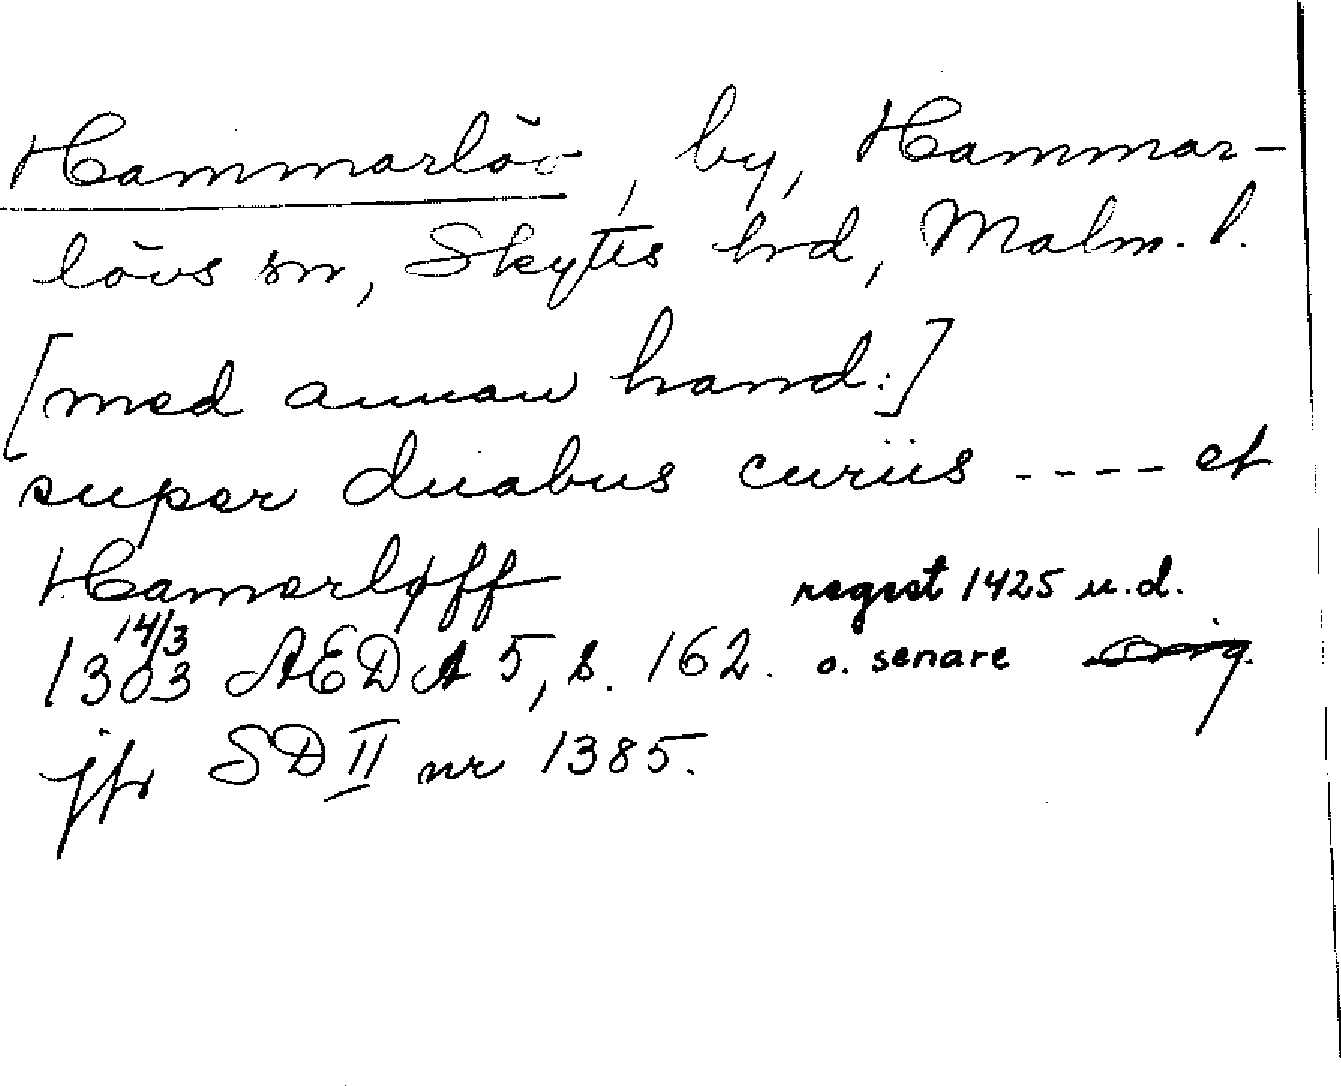 Hammarlöv, by, Hammar-
lövs sn, Skytts hrd, Malm. l.
[med annan hand:]
super duabus curiis ---- et
Hamerløff
regest 1425 u.d.
14/3
1303 AEDA 5, s. 162. o. senare Orig.
jfr SD II nr 1385.